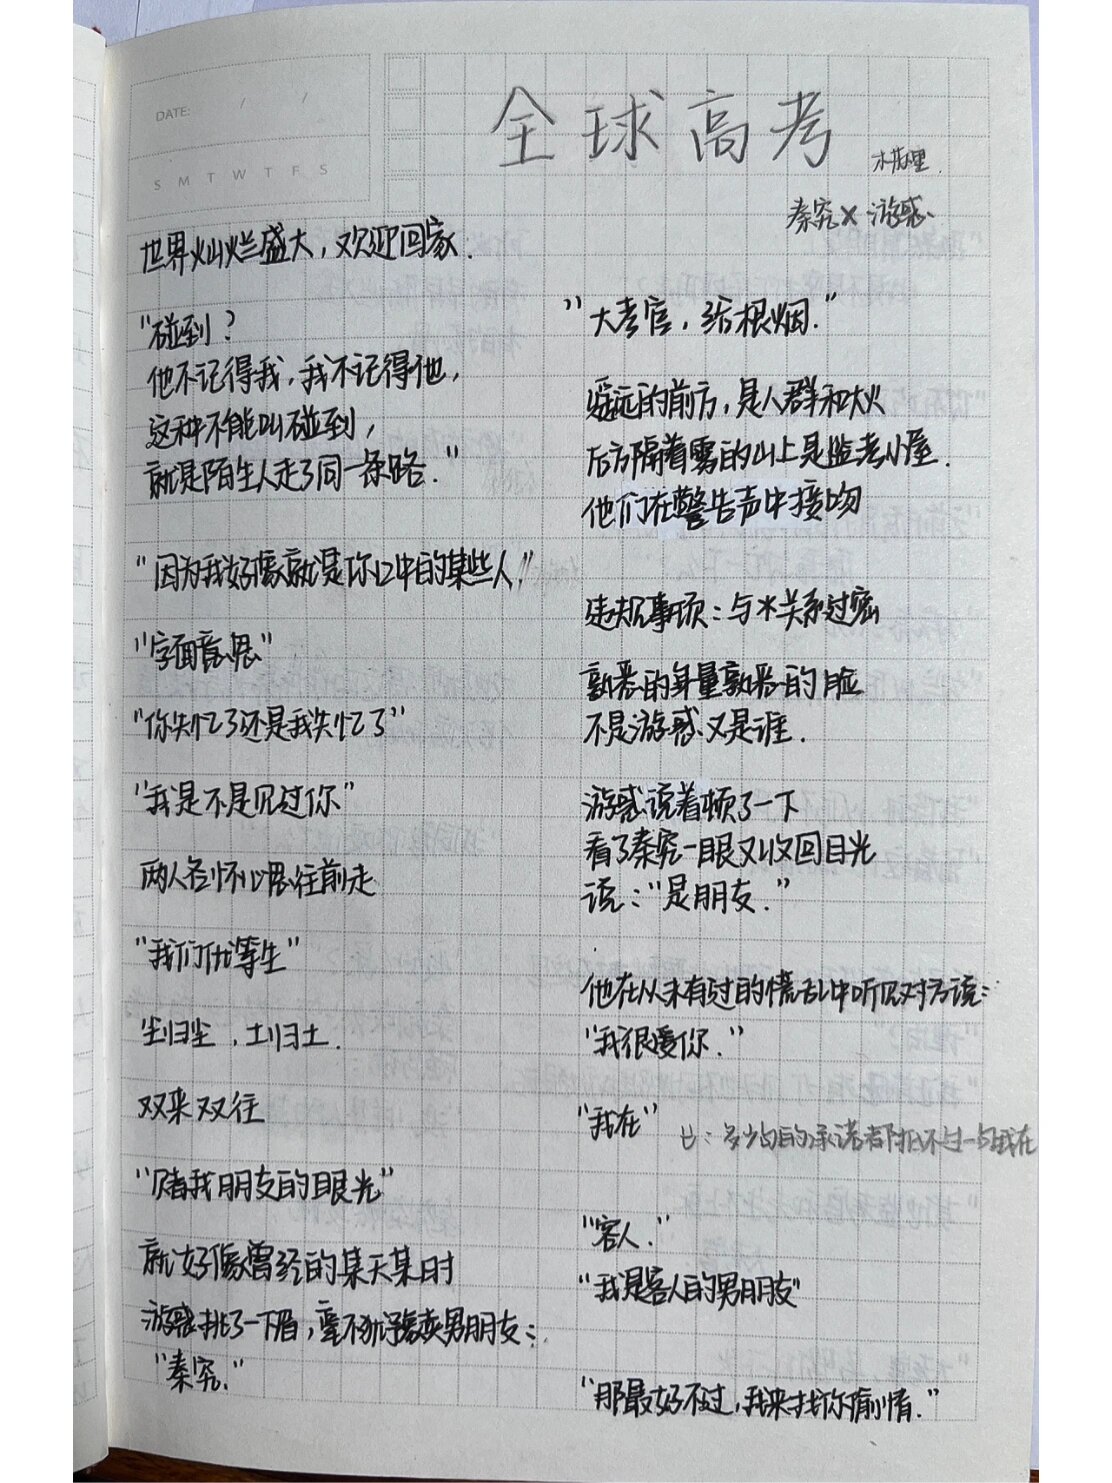 DATE: / /
S M T W T F S
全球高考
木苏里.
秦究×游惑.
世界灿烂盛大，欢迎回家.
"碰到？
他不记得我，我不记得他，
这种不能叫碰到，
就是陌生人走了同一条路."
"因为我好像就是你口中的某些人"
"字面意思"
"你失忆了还是我失忆了"
"我是不是见过你"
两人各怀心思往前走
"我们优等生"
尘归尘，土归土.
双来双往
"赌我朋友的眼光"
就好像曾经的某天某时
游惑挑了一下眉，毫不犹豫卖男朋友：
"秦究."
"大考官，给根烟."
遥远的前方，是人群和大火
后方隔着雾的山上是监考小屋.
他们在警告声中接吻
违规事项：与*关系过密
熟悉的身量熟悉的脸
不是游惑又是谁.
游惑说着顿了一下
看了秦究一眼又收回目光
说："是朋友."
他在从未有过的慌乱中听见对方说：
"我很爱你."
"我在"
多少的承诺都抵不过一句我在
"客人."
"我是客人的男朋友"
"那最好不过，我来找你偷情."